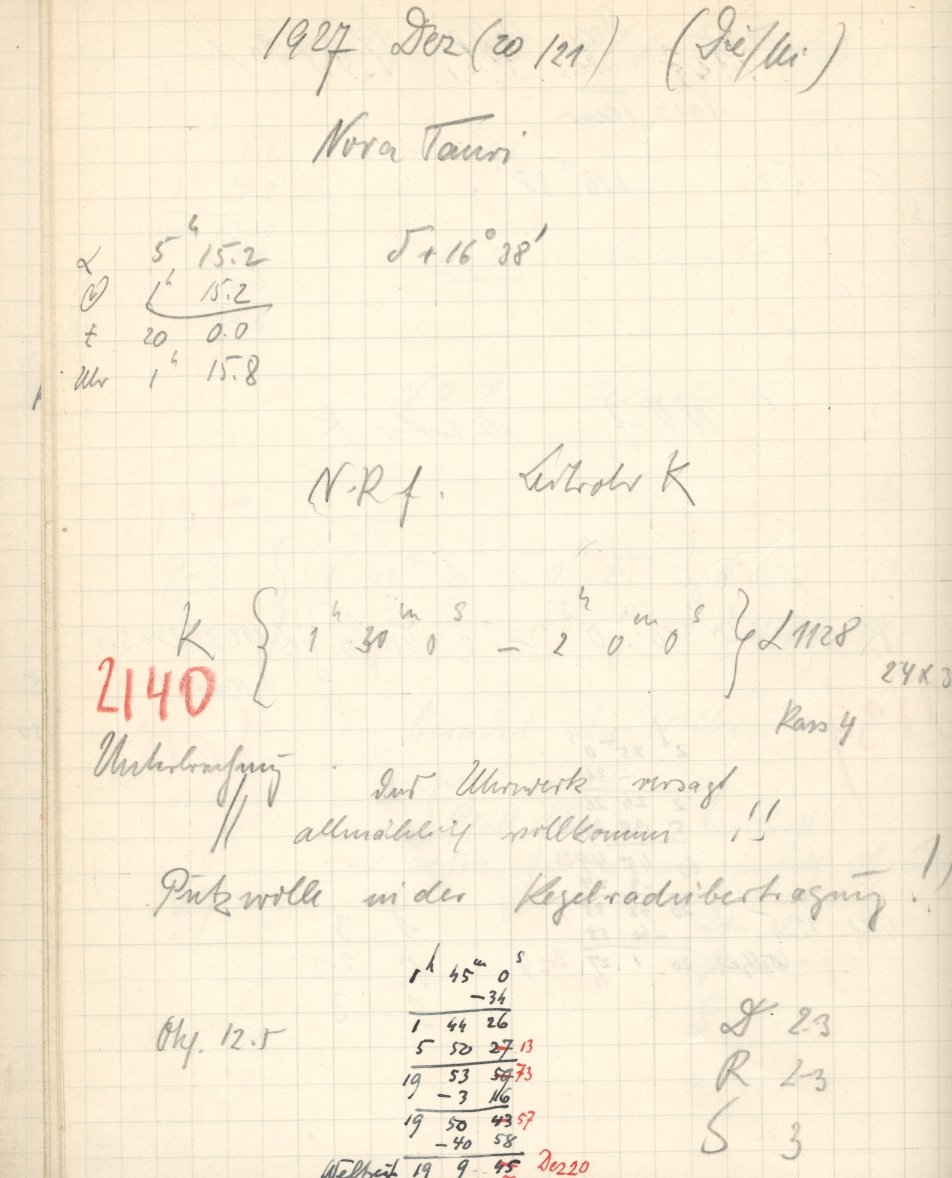 1927 Dez (20/21) (Die/Mi)
Nova Tauri
α 5ʰ 15.2 δ + 16° 38'
1ʰ 15.2
t 20 0.0
Uhr 1ʰ 15.8
N.R f. Leitrohr K
K { 1ʰ 30ᵐ 0ˢ – 2ʰ 0ᵐ 0ˢ } L 1128
2140
24 x 3
Kass 4
Unterbrechung
// Das Uhrwerk versagt
allmählich vollkommen !!
Putzwolle in der Kegelradübertragung !!
1ʰ 45ᵐ 0ˢ
-34
1 44 26
Okj. 12.5
5 50 27 13
19 53 73
-3 16
19 50 43 57
-40 58
Weltzeit 19 9 45 Dez 20
D 23
R 23
S 3